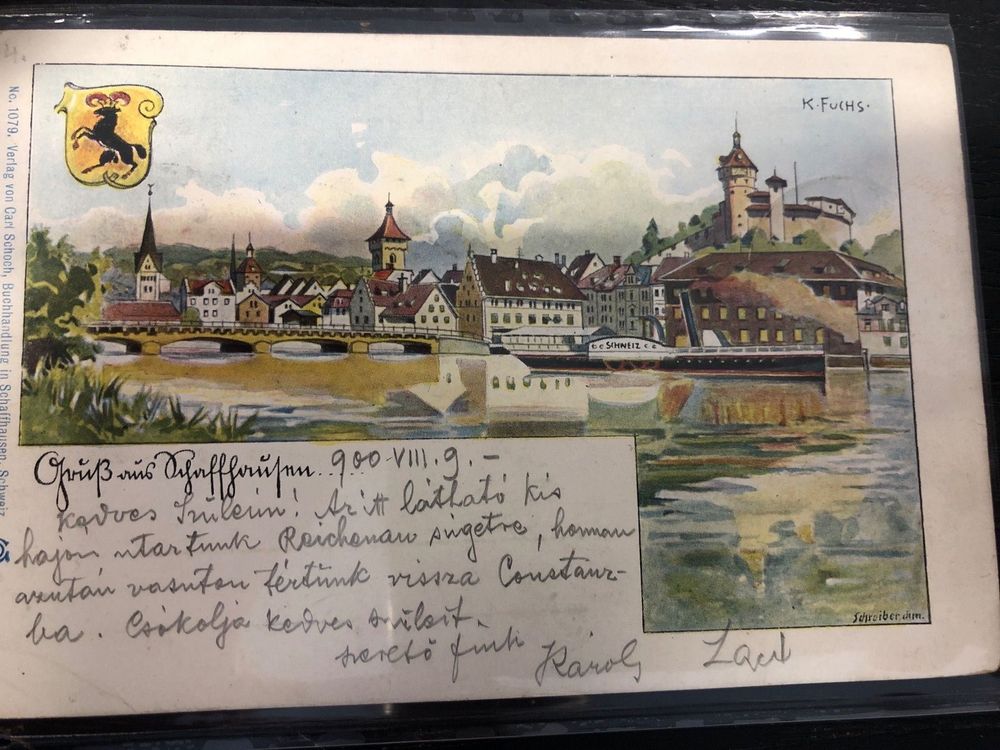 No. 1079. Verlag von Carl Schoch, Buchhandlung in Schaffhausen, Schweiz
K. FUCHS.
SCHWEIZ
Gruß aus Schaffhausen. 900 VIII. 9. –
kedves Szüleim! Az itt látható kis
hajón utaztunk Reichenau szigetre, honnan
azután vasuton tértünk vissza Constanz-
ba. Csókolja kedves szüleit
szerető fiuk
Károly
Schreiber chm.